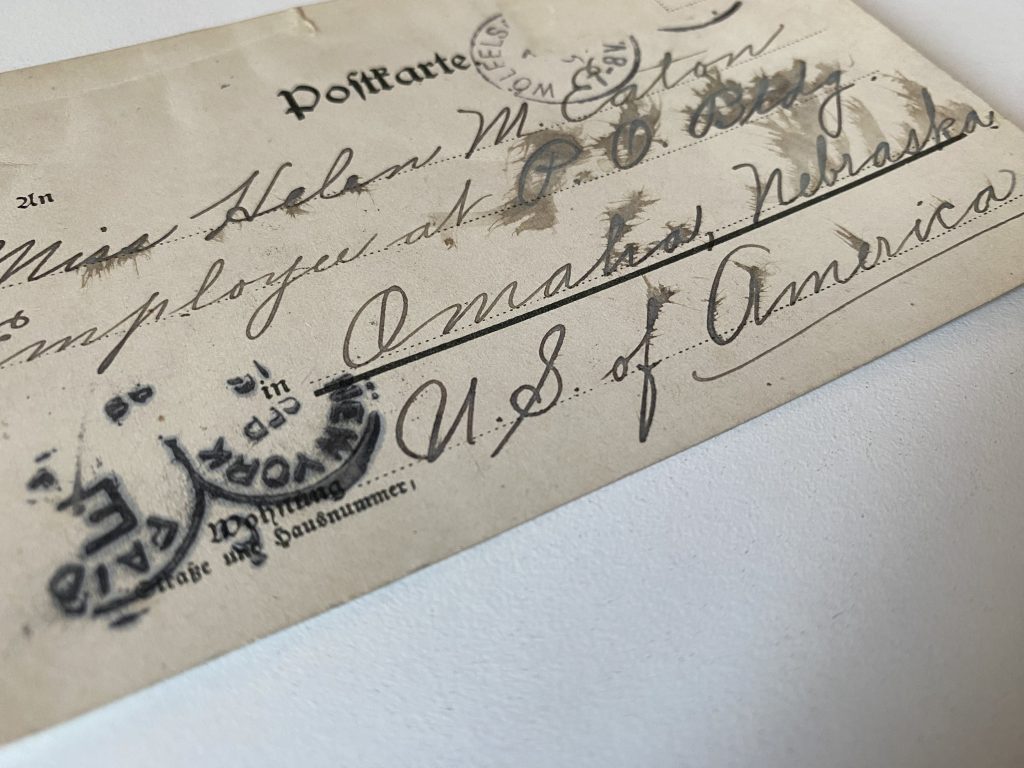 Postkarte
WÖLFELS
An
Miss Helen M. Eaton
Employee at P. O Bldg.
Omaha, Nebraska.
in
U.S. of America
NEW YORK
PAID
Wohnung
Straße und Hausnummer: